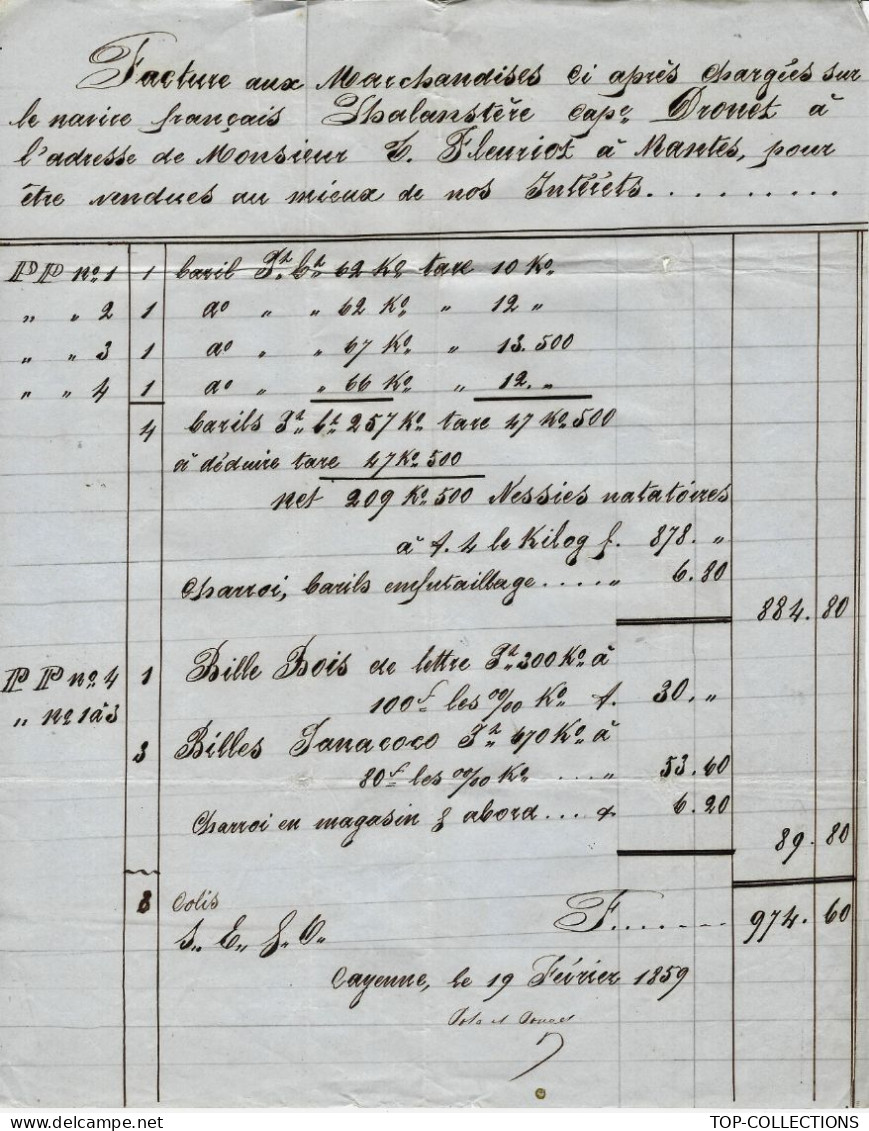 Facture aux Marchandises ci après chargées sur
le navire français Phalanstère cap.e Drouet à
l'adresse de Monsieur E. Fleuriot à Nantes, pour
être vendues au mieux de nos Intérêts..........
PP no. 1 1 baril Pt. bt. 62 Ko. tare 10 Ko
" " 2 1 do " " 62 Ko " 12 "
" " 3 1 do " " 67 Ko. " 13.500
" " 4 1 do " " 66 Ko " 12. "
4 barils Pt. bt. 257 Ko. tare 47 Ko. 500
à déduire tare 47 Ko 500
net 209 Ko. 500 Vessies natatoires
à f. 4 le Kilog f. 878. "
Charroi, barils enfutaillage..... " 6.80
884.80
PP no. 4 1 Bille Bois de lettre Pt. 300 Ko. à
" no. 1 à 3 100 f les 00/00 Ko. f. 30. "
3 Billes Panacoco Pt. 670 Ko. à
80 f les 00/00 Ko .... " 53.60
Charroi en magasin & abord.... 6.20
89.80
8 Colis F....... 974.60
S. E. & O.
Cayenne, le 19 Février 1859
TOP-COLLECTIONS